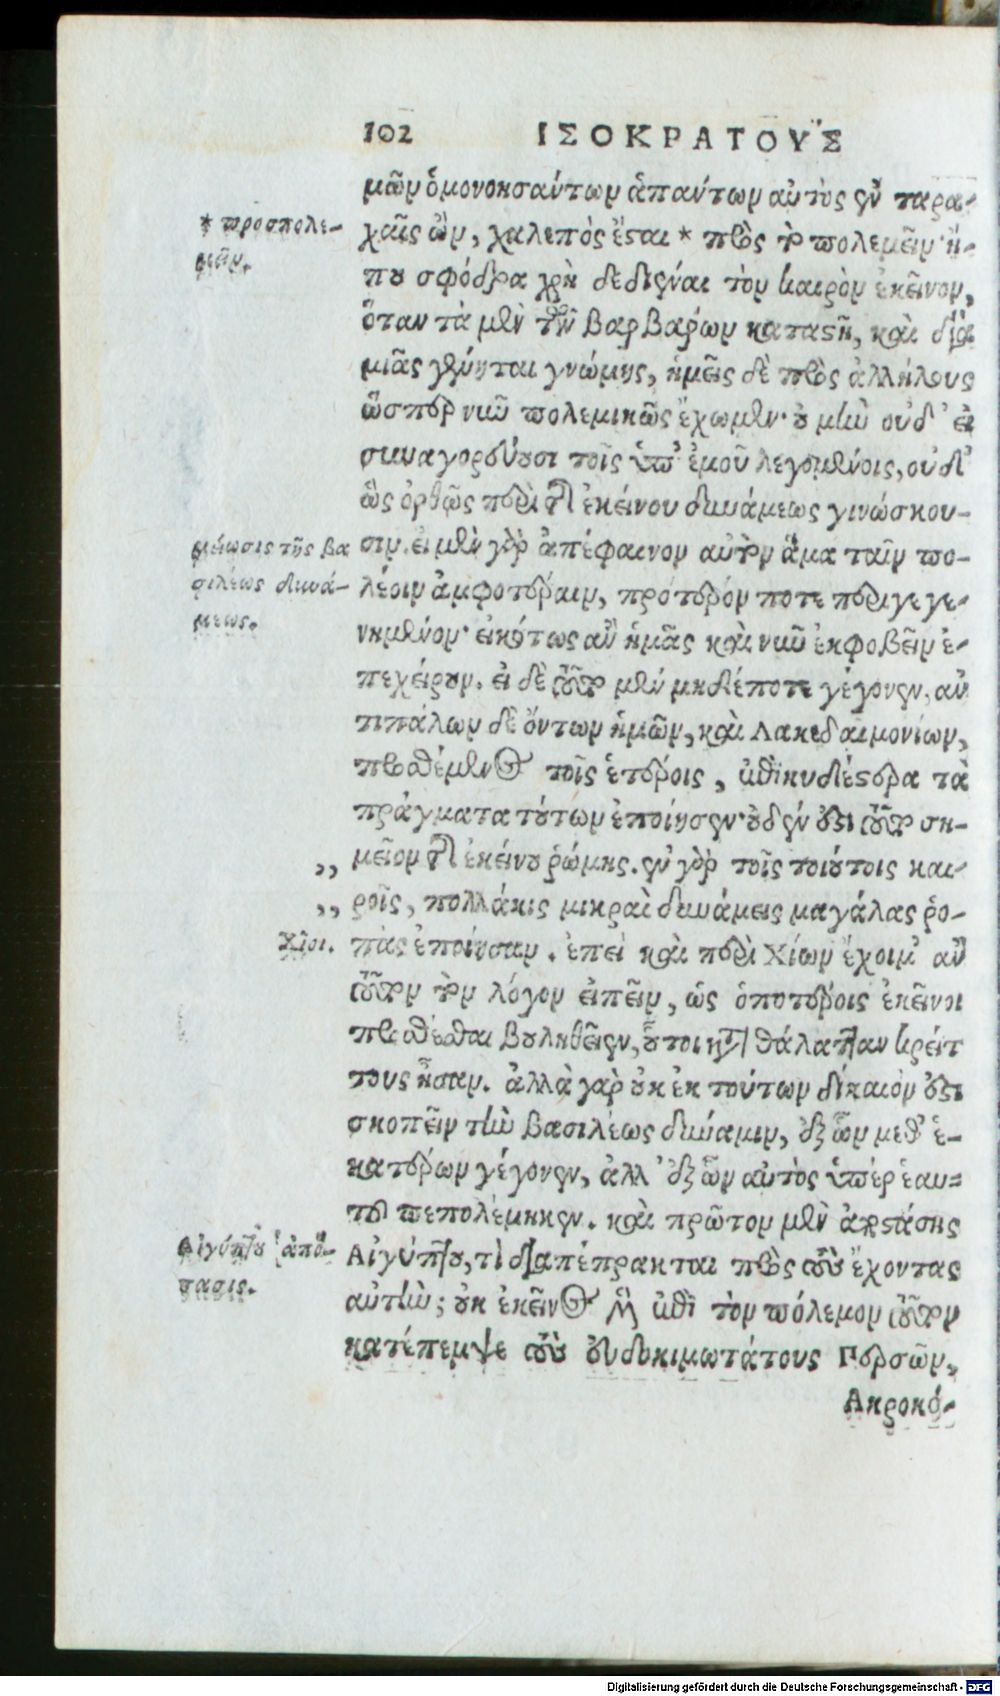 102 ΙΣΟΚΡΑΤΟΥΣ
μῶν ὁμονοησάντων ἁπάντων αὐτὸς ἐν ταρα-
* προσπολε-
μεῖν.
χαῖς ὢν, χαλεπὸς ἔσται * πρὸς τὸ πολεμεῖν· ἤ-
που σφόδρα χρὴ δεδιέναι τὸν καιρὸν ἐκεῖνον,
ὅταν τὰ μὲν τῶν βαρβάρων καταστῇ, καὶ διὰ
μιᾶς γένηται γνώμης, ἡμεῖς δὲ πρὸς ἀλλήλους
ὥσπερ νῦν πολεμικῶς ἔχωμεν· οὐ μὴν οὐδ' εἰ
συναγορεύουσι τοῖς ὑπ' ἐμοῦ λεγομένοις, οὐδ'
ὣς ὀρθῶς περὶ τῆς ἐκείνου δυνάμεως γινώσκου-
μείωσις τῆς βα
σιλέως δυνά-
μεως.
σιν. εἰ μὲν γὰρ ἀπέφαινον αὐτὸν ἅμα ταῖν πο-
λέοιν ἀμφοτέραιν, πρότερόν ποτε περιγεγε-
νημένον· εἰκότως ἂν ἡμᾶς καὶ νῦν ἐκφοβεῖν ἐ-
πεχείρουν. εἰ δὲ τοῦτο μὲν μηδέποτε γέγονεν, ἀν
τιπάλων δὲ ὄντων ἡμῶν, καὶ Λακεδαιμονίων,
προσθέμενος τοῖς ἑτέροις, ἐπικυδέστερα τὰ
πράγματα τούτων ἐποίησεν· οὐδέν ἐστι τοῦτο ση-
,, μεῖον τῆς ἐκείνου ῥώμης. ἐν γὰρ τοῖς τοιούτοις και-
,, ροῖς, πολλάκις μικραὶ δυνάμεις μεγάλας ῥο-
Χῖοι.
πὰς ἐποίησαν. ἐπεὶ καὶ περὶ Χίων ἔχοιμ' ἂν
τοῦτον τὸν λόγον εἰπεῖν, ὡς ὁποτέροις ἐκεῖνοι
προσθέσθαι βουληθεῖεν, οὗτοι κατὰ θάλατταν κρείτ
τους ἦσαν. ἀλλὰ γὰρ οὐκ ἐκ τούτων δίκαιόν ἐστι
σκοπεῖν τὴν βασιλέως δύναμιν, ἐξ ὧν μεθ' ἑ-
κατέρων γέγονεν, ἀλλ' ἐξ ὧν αὐτὸς ὑπὲρ ἑαυ-
τοῦ πεπολέμηκεν. καὶ πρῶτον μὲν ἀποστάσης
Αἰγύπτου ἀπό-
στασις.
Αἰγύπτου, τί διαπέπρακται πρὸς τοὺς ἔχοντας
αὐτήν; οὐκ ἐκεῖνος μὲν ἐπὶ τὸν πόλεμον τοῦτον
κατέπεμψε τοὺς εὐδοκιμωτάτους Περσῶν,
Ἀκροκό-
Digitalisierung gefördert durch die Deutsche Forschungsgemeinschaft - DFG